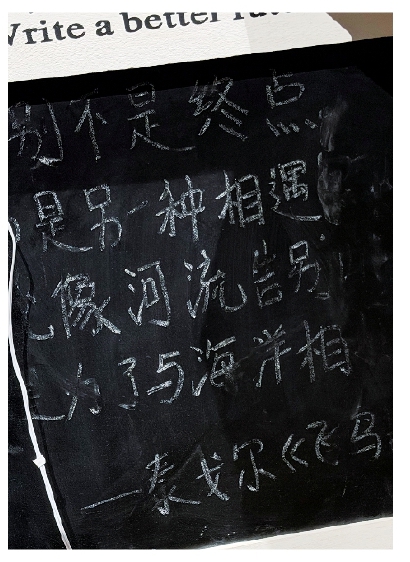 Write a better
别不是终点
是另一种相遇
像河流告别
为了与海洋相
—泰戈尔《飞鸟